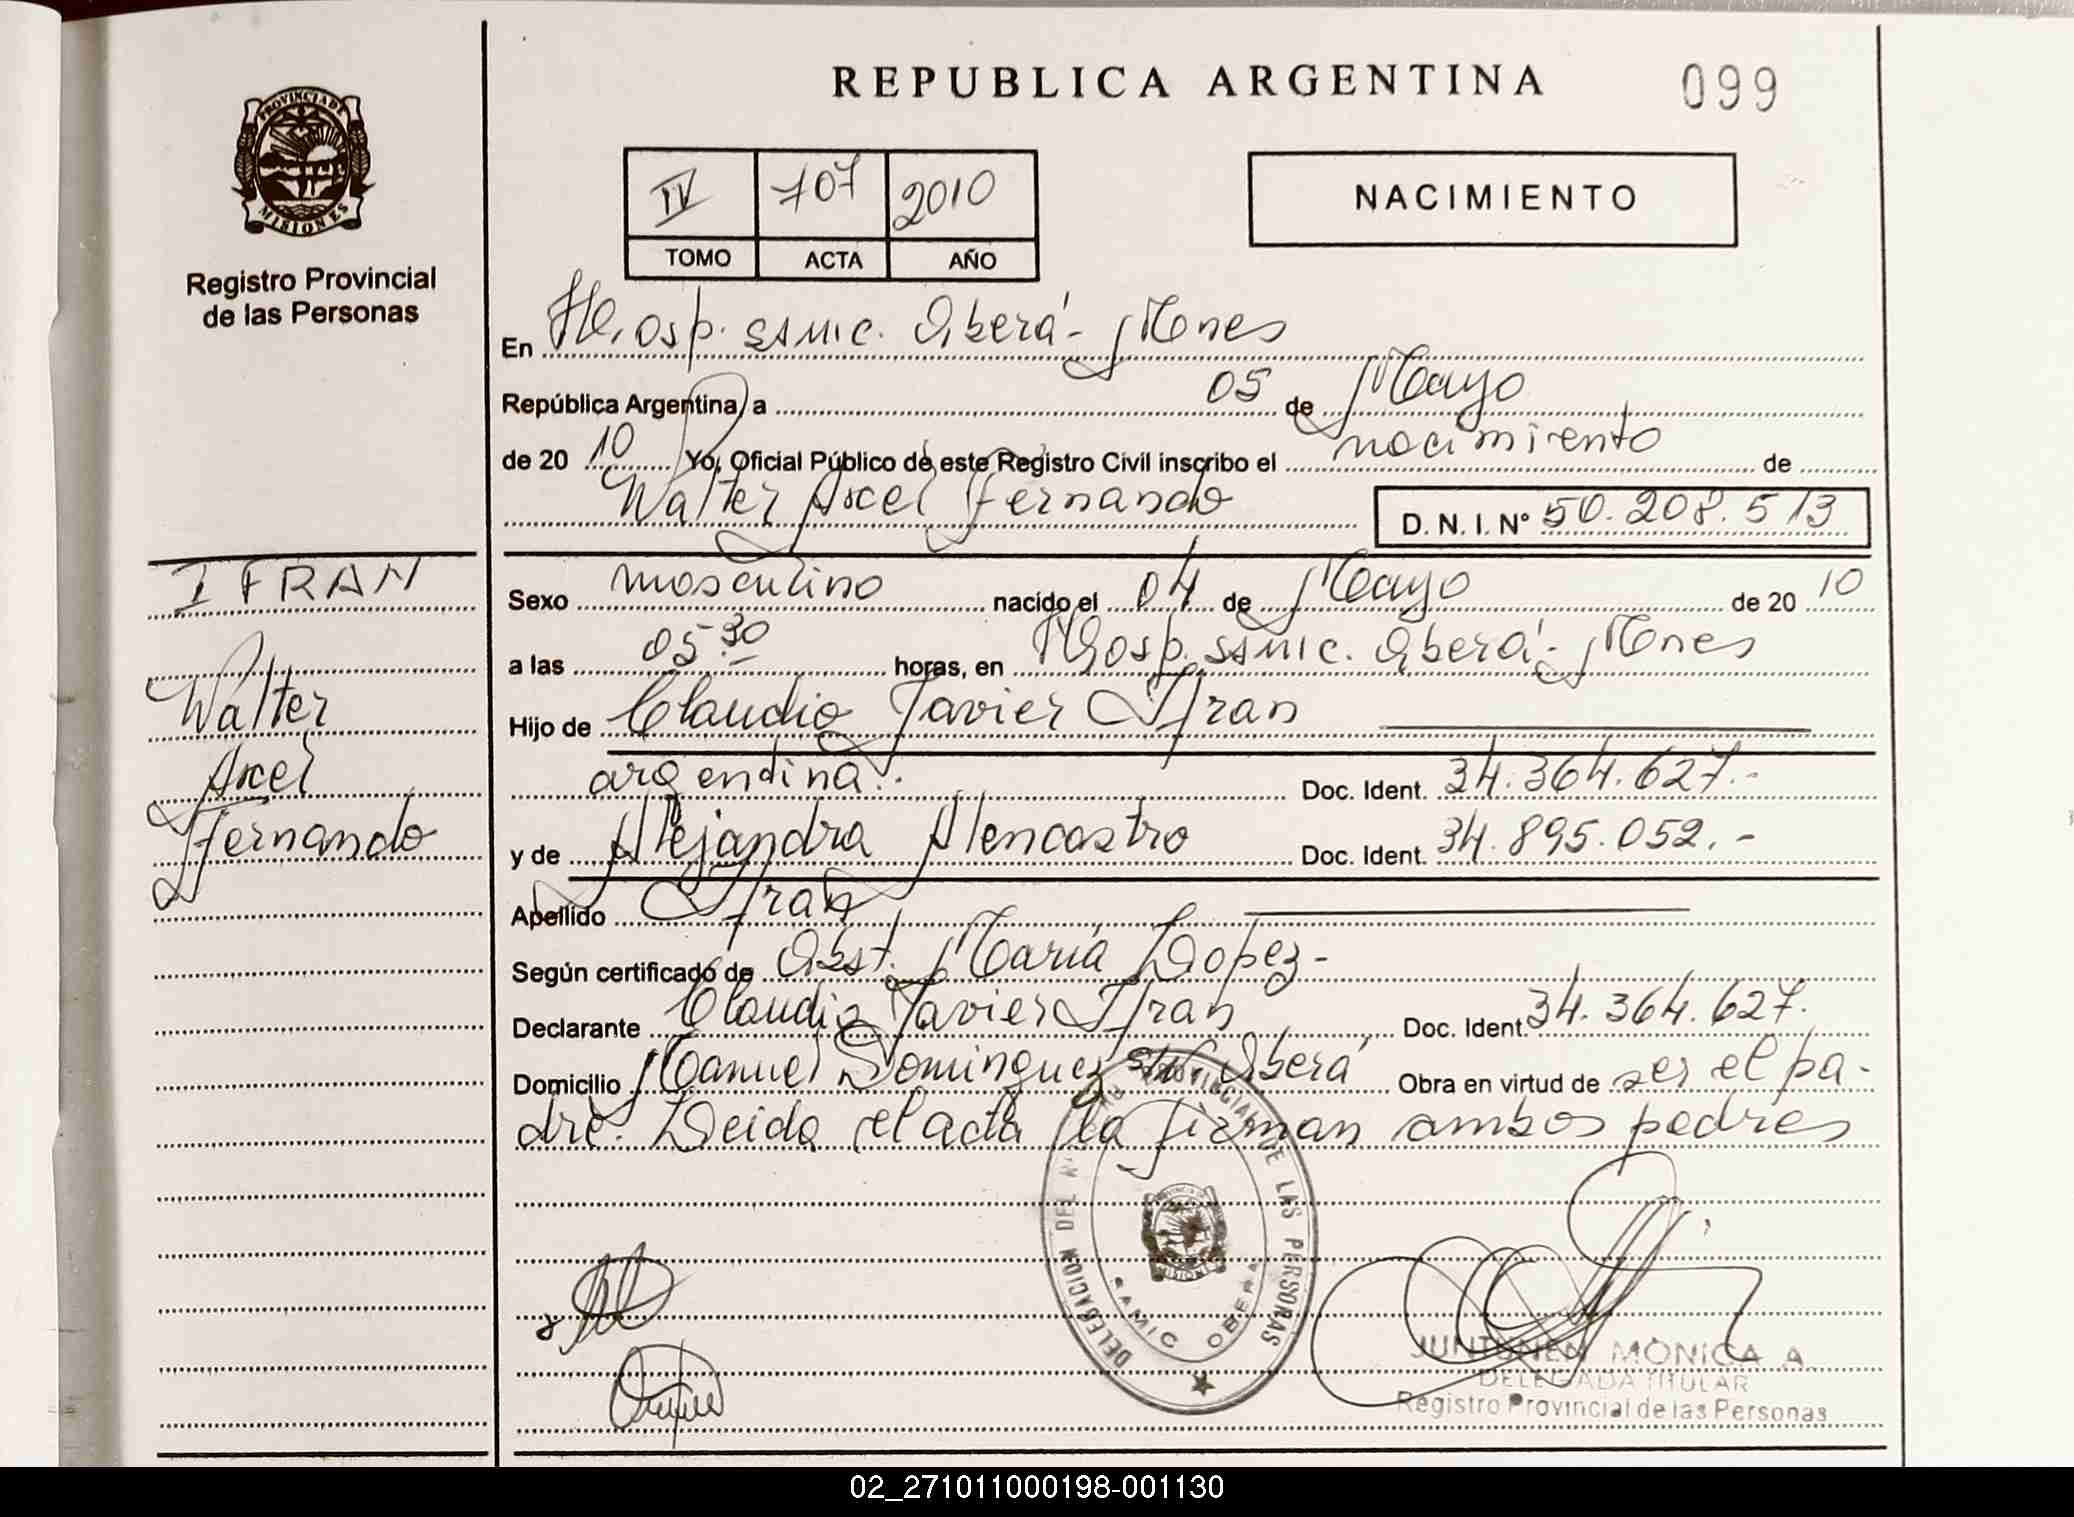 REPUBLICA ARGENTINA
099
PROVINCIA DE
MISIONES
Registro Provincial
de las Personas
IV 707 2010
TOMO ACTA AÑO
NACIMIENTO
En Hosp. SAMIC. Oberá - Mnes
República Argentina, a 05 de Mayo
de 20 10 Yo, Oficial Público de este Registro Civil inscribo el nacimiento de
Walter Axel Fernando D. N. I. N° 50.208.513
IFRAN
Walter
Axel
Fernando
Sexo masculino nacido el 04 de Mayo de 20 10
a las 05 30 horas, en Hosp. SAMIC. Oberá - Mnes
Hijo de Claudio Javier Ifran
argentina. Doc. Ident. 34.364.627.-
y de Alejandra Alencastro Doc. Ident. 34.895.052.-
Apellido Ifran
Según certificado de Obst. María Lopez-
Declarante Claudio Javier Ifran Doc. Ident. 34.364.627.
Domicilio Manuel Dominguez S/N° Oberá Obra en virtud de ser el pa-
dre. Leida el acta la firman ambos padres
DELEGACION DEL PROVINCIAL DE LAS PERSONAS
SAMIC OBERA
JUNTUNEN MONICA A.
DELEGADA TITULAR
Registro Provincial de las Personas
02_271011000198-001130